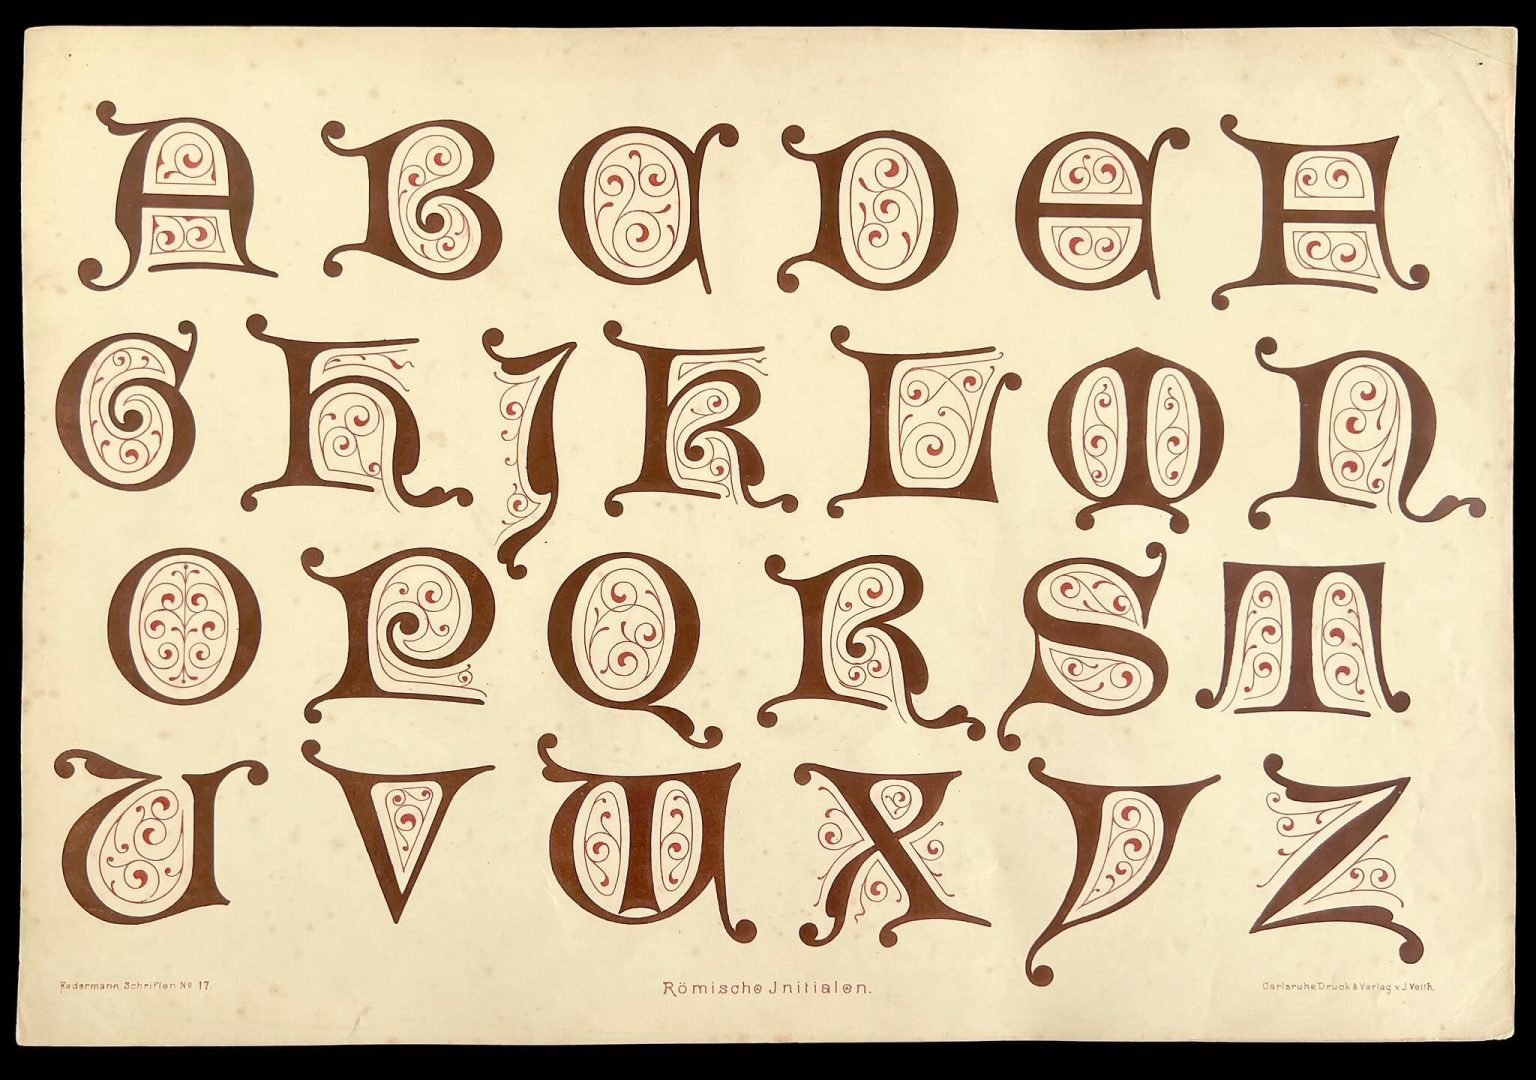 A B C D E F
G H J K L M N
O P Q R S T
U V W X Y Z
Federmann, Schriften No 17.
Römische Jnitialen.
Carlsruhe, Druck & Verlag v J. Veith.